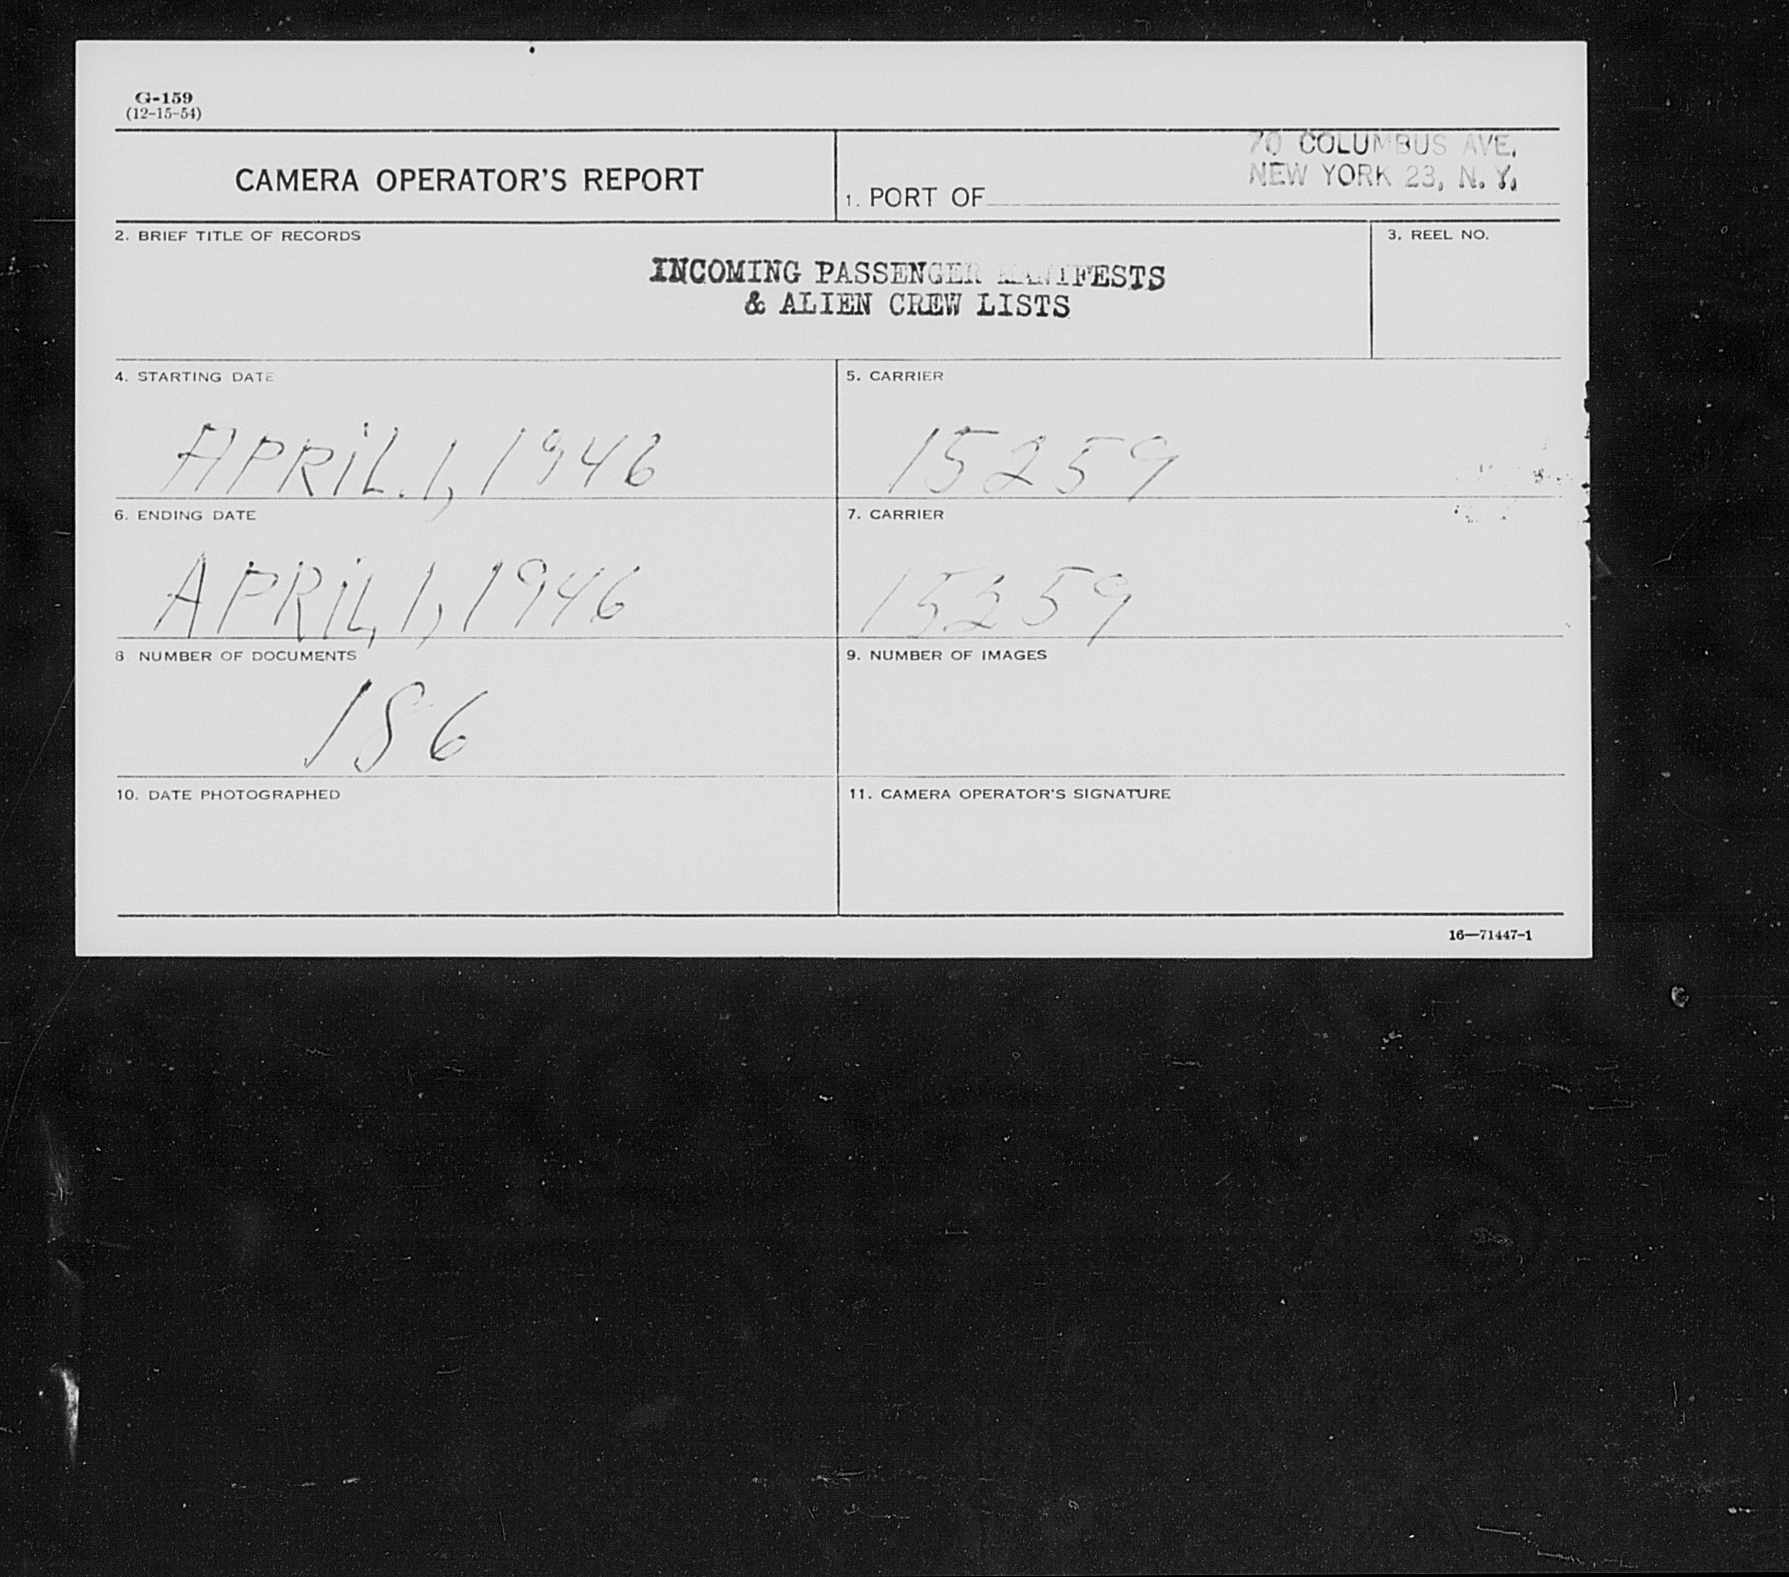 G-159
(12-15-54)
CAMERA OPERATOR'S REPORT
1. PORT OF
70 COLUMBUS AVE.
NEW YORK 23, N. Y.
2. BRIEF TITLE OF RECORDS
INCOMING PASSENGER MANIFESTS
& ALIEN CREW LISTS
3. REEL NO.
4. STARTING DATE
APRIL. 1, 1946
5. CARRIER
15259
6. ENDING DATE
APRIL, 1, 1946
7. CARRIER
15259
8 NUMBER OF DOCUMENTS
186
9. NUMBER OF IMAGES
10. DATE PHOTOGRAPHED
11. CAMERA OPERATOR'S SIGNATURE
16—71447-1